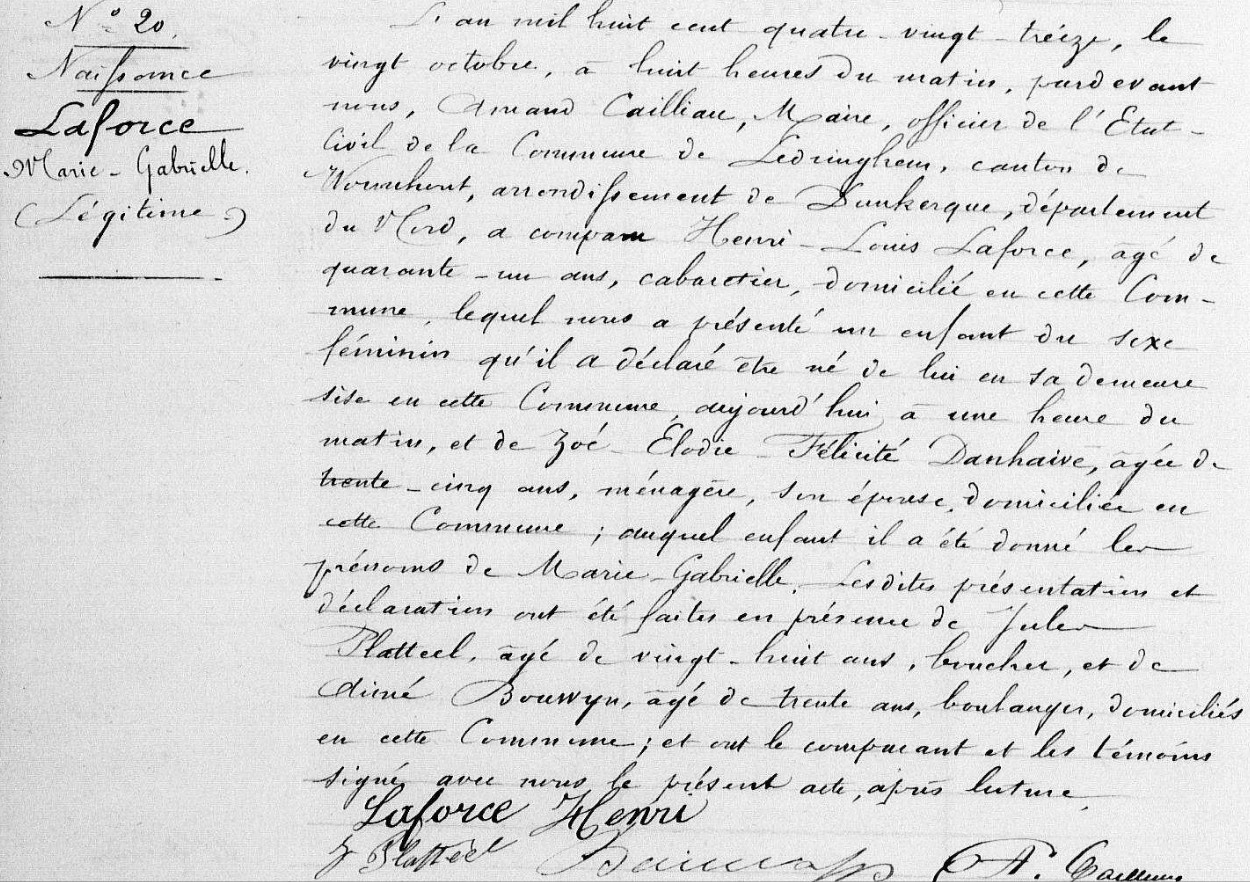 N° 20.
Naissance
Laforce
Marie-Gabrielle.
(Légitime)
L'an mil huit cent quatre-vingt-treize, le
vingt octobre, à huit heures du matin, pardevant
nous, Amand Cailliau, Maire, officier de l'Etat-
Civil de la Commune de Ledringhem, canton de
Wormhout, arrondissement de Dunkerque, département
du Nord, a comparu Henri-Louis Laforce, âgé de
quarante-un ans, cabaretier, domicilié en cette Com-
mune, lequel nous a présenté un enfant du sexe
féminin qu'il a déclaré être né de lui en sa demeure
sise en cette Commune, aujourd'hui à une heure du
matin, et de Zoé-Élodie-Félicité Danhaive, âgée de
trente-cinq ans, ménagère, son épouse, domiciliée en
cette Commune; auquel enfant il a été donné les
prénoms de Marie-Gabrielle. Lesdites présentation et
déclaration ont été faites en présence de Jules
Platteel, âgé de vingt-huit ans, boucher, et de
Aimé Bouwyn, âgé de trente ans, boulanger, domiciliés
en cette Commune; et ont le comparant et les témoins
signé avec nous le présent acte, après lecture.
Laforce Henri
J Platteel A. Cailliau